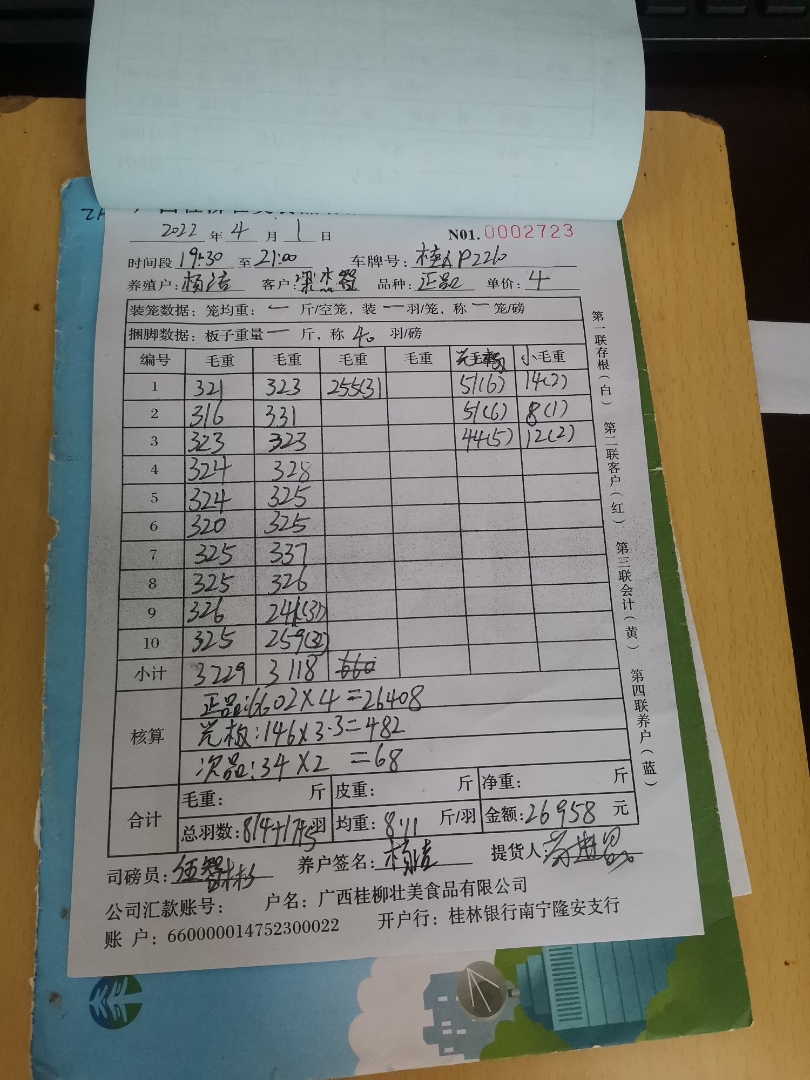 2022 年 4 月 1 日 N01. 0002723
时间段 19:30 至 21:00 车牌号: 桂AP2260
养殖户: 杨洁 客户: 品种: 正品 单价: 4
装笼数据: 笼均重: 一 斤/空笼, 装 一 羽/笼, 称 一 笼/磅
捆脚数据: 板子重量 一 斤, 称 40 羽/磅
编号 毛重 毛重 毛重 毛重 小毛重
1 321 323 255(31) 51(6) 14(2)
2 316 331 51(6) 8(1)
3 323 323 44(5) 12(2)
4 324 328
5 324 325
6 320 325
7 325 337
8 325 326
9 326 246(31)
10 325 259(32)
小计 3229 3118 660
核算
正品:6602×4=26408
光板:146×3.3=482
次品:34×2 =68
合计
毛重: 斤 皮重: 斤 净重: 斤
总羽数: 814+17+5羽 均重: 8.11 斤/羽 金额: 26958 元
司磅员: 养户签名: 杨洁 提货人:
公司汇款账号: 户名: 广西桂柳壮美食品有限公司
账 户: 660000014752300022 开户行: 桂林银行南宁隆安支行
第一联存根(白) 第二联客户(红) 第三联会计(黄) 第四联养户(蓝)